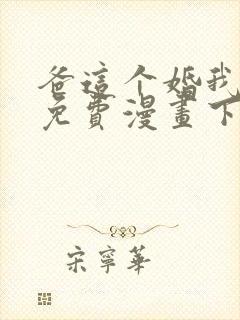 爸這个婚我
免費漫畫下
宋寧華